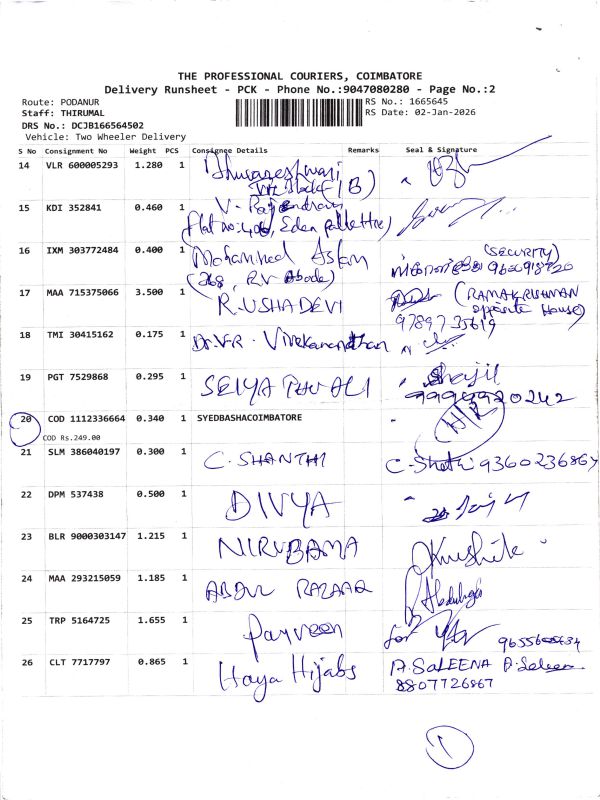 THE PROFESSIONAL COURIERS, COIMBATORE
Delivery Runsheet - PCK - Phone No.:9047080280 - Page No.:2
Route: PODANUR RS No.: 1665645
Staff: THIRUMAL RS Date: 02-Jan-2026
DRS No.: DCJB166564502
Vehicle: Two Wheeler Delivery
S No Consignment No Weight PCS Consignee Details Remarks Seal & Signature
14 VLR 600005293 1.280 1 Bhuvaneshwari
15 KDI 352841 0.460 1 V. Rajendran
(Flat no: 406, Eden
16 IXM 303772484 0.400 1 Mohammed Aslam (SECURITY)
(268, R.V Abode)
17 MAA 715375066 3.500 1 R. USHA DEVI (RAMAKRISHNAN
opposite House)
9789735619
18 TMI 30415162 0.175 1 Dr. V.R. Vivekanandhan
19 PGT 7529868 0.295 1 Shajil
20 COD 1112336664 0.340 1 SYEDBASHACOIMBATORE
COD Rs.249.00
21 SLM 386040197 0.300 1 C. SHANTHI C. Shathi 9360236867
22 DPM 537438 0.500 1 DIVYA
23 BLR 9000303147 1.215 1 NIRUBAMA
24 MAA 293215059 1.185 1 ABDUL RAZAAQ
25 TRP 5164725 1.655 1 Parveen for
26 CLT 7717797 0.865 1 Haya Hijabs A. SALEENA A. Saleena
8807726867
1